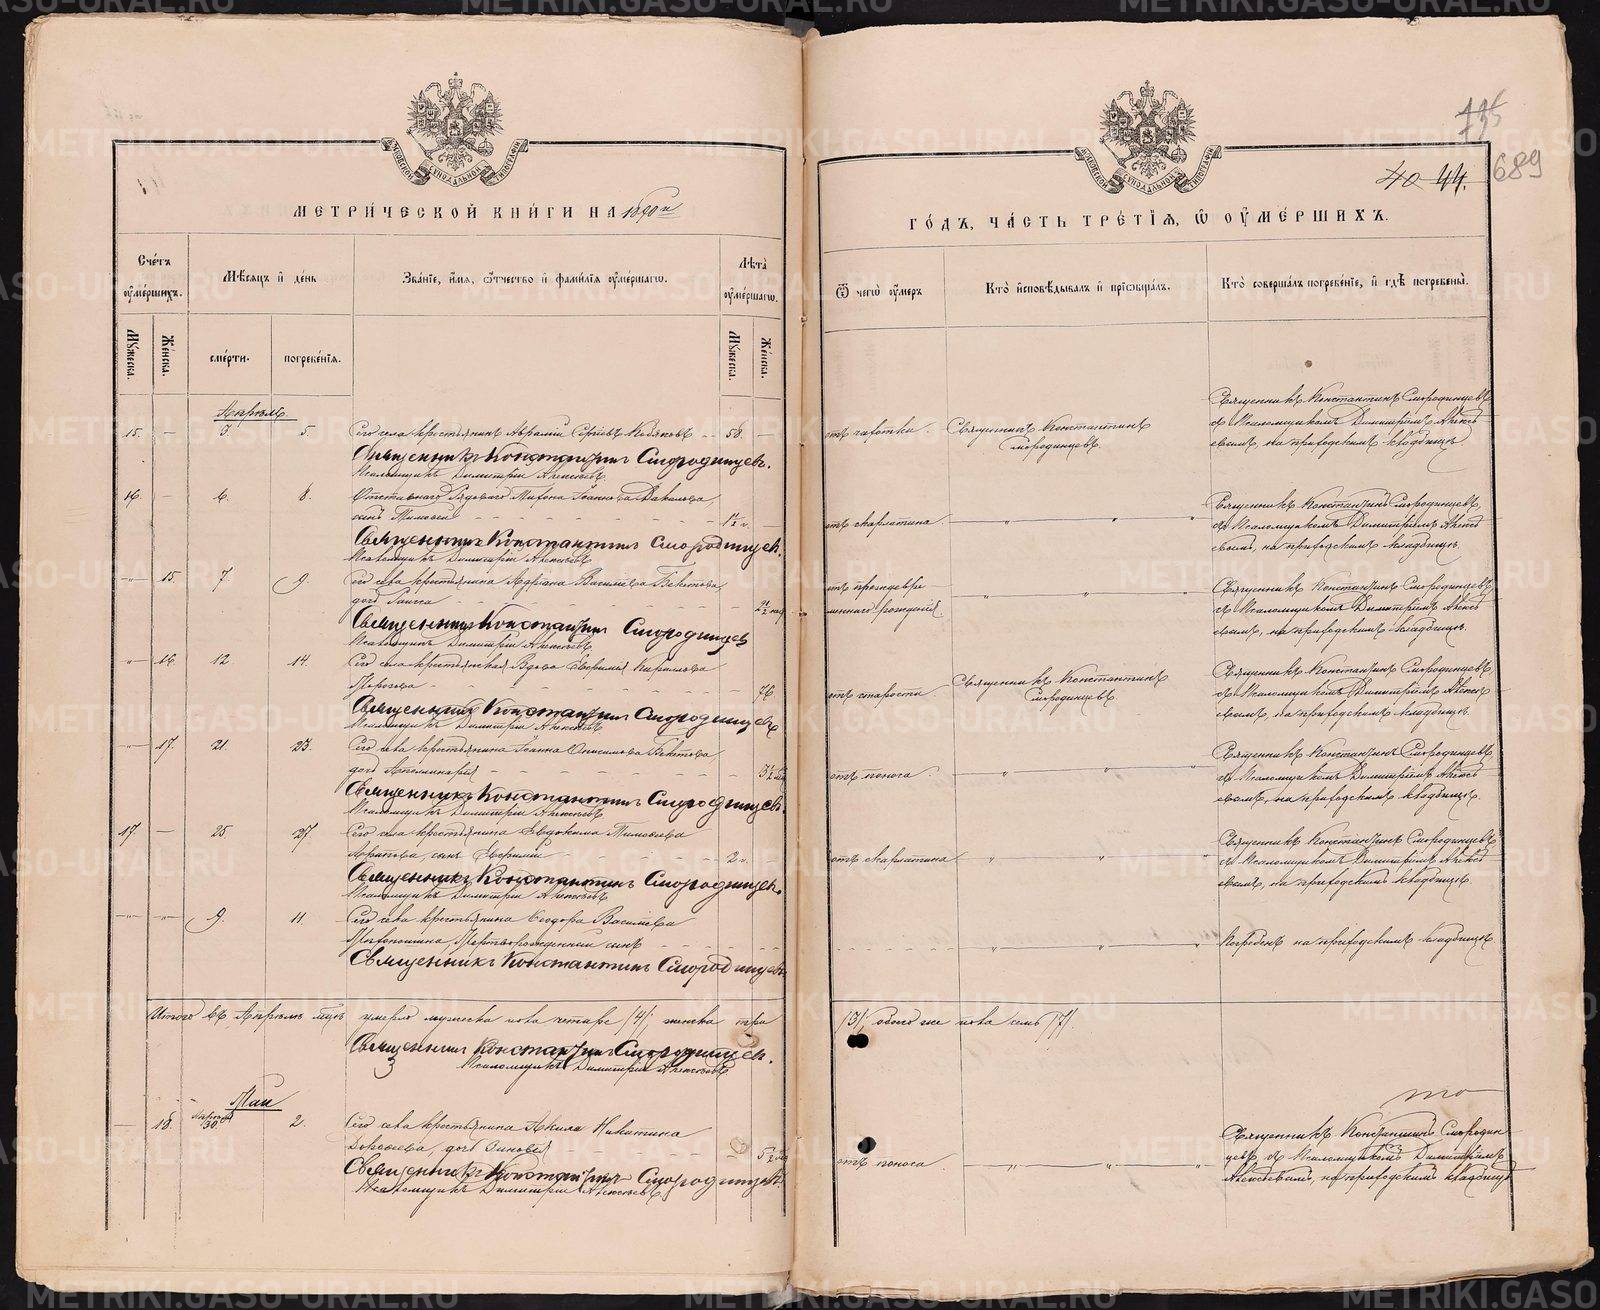 МЕТРИЧЕСКОЙ КНИГИ НА 1890й
ГОДЪ, ЧАСТЬ ТРЕТІЯ, Ѿ ОУМЕРШИХЪ.
40 44.
689
Счетъ оумершихъ.
Мѣсяцъ и день
Званіе, имя, отчество и фамилія оумершагѡ.
Лѣта оумершагѡ.
Ѿ чегѡ оумеръ
Кто исповѣдывалъ и пріобщалъ.
Кто совершалъ погребеніе, и гдѣ погребены.
Мужеска.
Женска.
смерти.
погребенія.
Мужеска.
Женска.
Апрѣль
15. — 3. 5. Сего села крестьянинъ Авраамій 58. —
отъ чахотки. Священникъ Константинъ Смородинцевъ.
Священникъ Константинъ Смородинцевъ
съ Псаломщикомъ Димитріемъ Алексѣевымъ, на приходскомъ кладбищѣ.
Священникъ Константинъ Смородинцевъ.
Псаломщикъ Димитрій Алексѣевъ
16. — 6. 8. Отставного Рядового Іоаннова
сынъ Тимофей 1½ г. —
отъ скарлатина.
Священникъ Константинъ Смородинцевъ,
съ Псаломщикомъ Димитріемъ Алексѣевымъ, на приходскомъ кладбищѣ.
Священникъ Константинъ Смородинцевъ.
Псаломщикъ Димитрій Алексѣевъ
15. 7 9. Сего села крестьянина Адріана Василіева
дочь Раиса
отъ преждевременнаго рожденія.
Священникъ Константинъ Смородинцевъ
съ Псаломщикомъ Димитріемъ Алексѣевымъ, на приходскомъ кладбищѣ.
Священникъ Константинъ Смородинцевъ
Псаломщикъ Димитрій Алексѣевъ
16. 12 14. Сего села крестьянская Вдова Кирилова
76
отъ старости Священникъ Константинъ Смородинцевъ.
Священникъ Константинъ Смородинцевъ,
съ Псаломщикомъ Димитріемъ Алексѣевымъ, на приходскомъ кладбищѣ.
Священникъ Константинъ Смородинцевъ
Псаломщикъ Димитрій Алексѣевъ
17. 21. 23. Сего села крестьянина Іоанна Онисимова
дочь Аполинарія 3½
отъ поноса.
Священникъ Константинъ Смородинцевъ
съ Псаломщикомъ Димитріемъ Алексѣевымъ, на приходскомъ кладбищѣ.
Священникъ Константинъ Смородинцевъ.
Псаломщикъ Димитрій Алексѣевъ
17. — 25 27. Сего села крестьянина Евдокима Тимофеева
сынъ 2 г.
отъ скарлатина
Священникъ Константинъ Смородинцевъ
съ Псаломщикомъ Димитріемъ Алексѣевымъ, на приходскомъ кладбищѣ.
Священникъ Константинъ Смородинцевъ.
Псаломщикъ Димитрій Алексѣевъ
9. 11. Сего села крестьянина Ѳеодора Василіева
Мертворожденный сынъ
Погребенъ на приходскомъ кладбищѣ
Священникъ Константинъ Смородинцевъ
Итого въ Апрѣлѣ мцѣ умерло мужеска пола четыре /4/, женска три
/3/, обоего же пола семь /7/.
Священникъ Константинъ Смородинцевъ.
Псаломщикъ Димитрій Алексѣевъ
Май
— 18. Апрѣля 30. 2. Сего села крестьянина Акила Никитина
Дорофеева, дочь 5½
отъ поноса
Священникъ Константинъ Смородинцевъ, съ Псаломщикомъ Димитріемъ
Алексѣевымъ, на приходскомъ кладбищѣ
Священникъ Константинъ Смородинцевъ.
Псаломщикъ Димитрій Алексѣевъ
METRIKI.GASO-URAL.RU